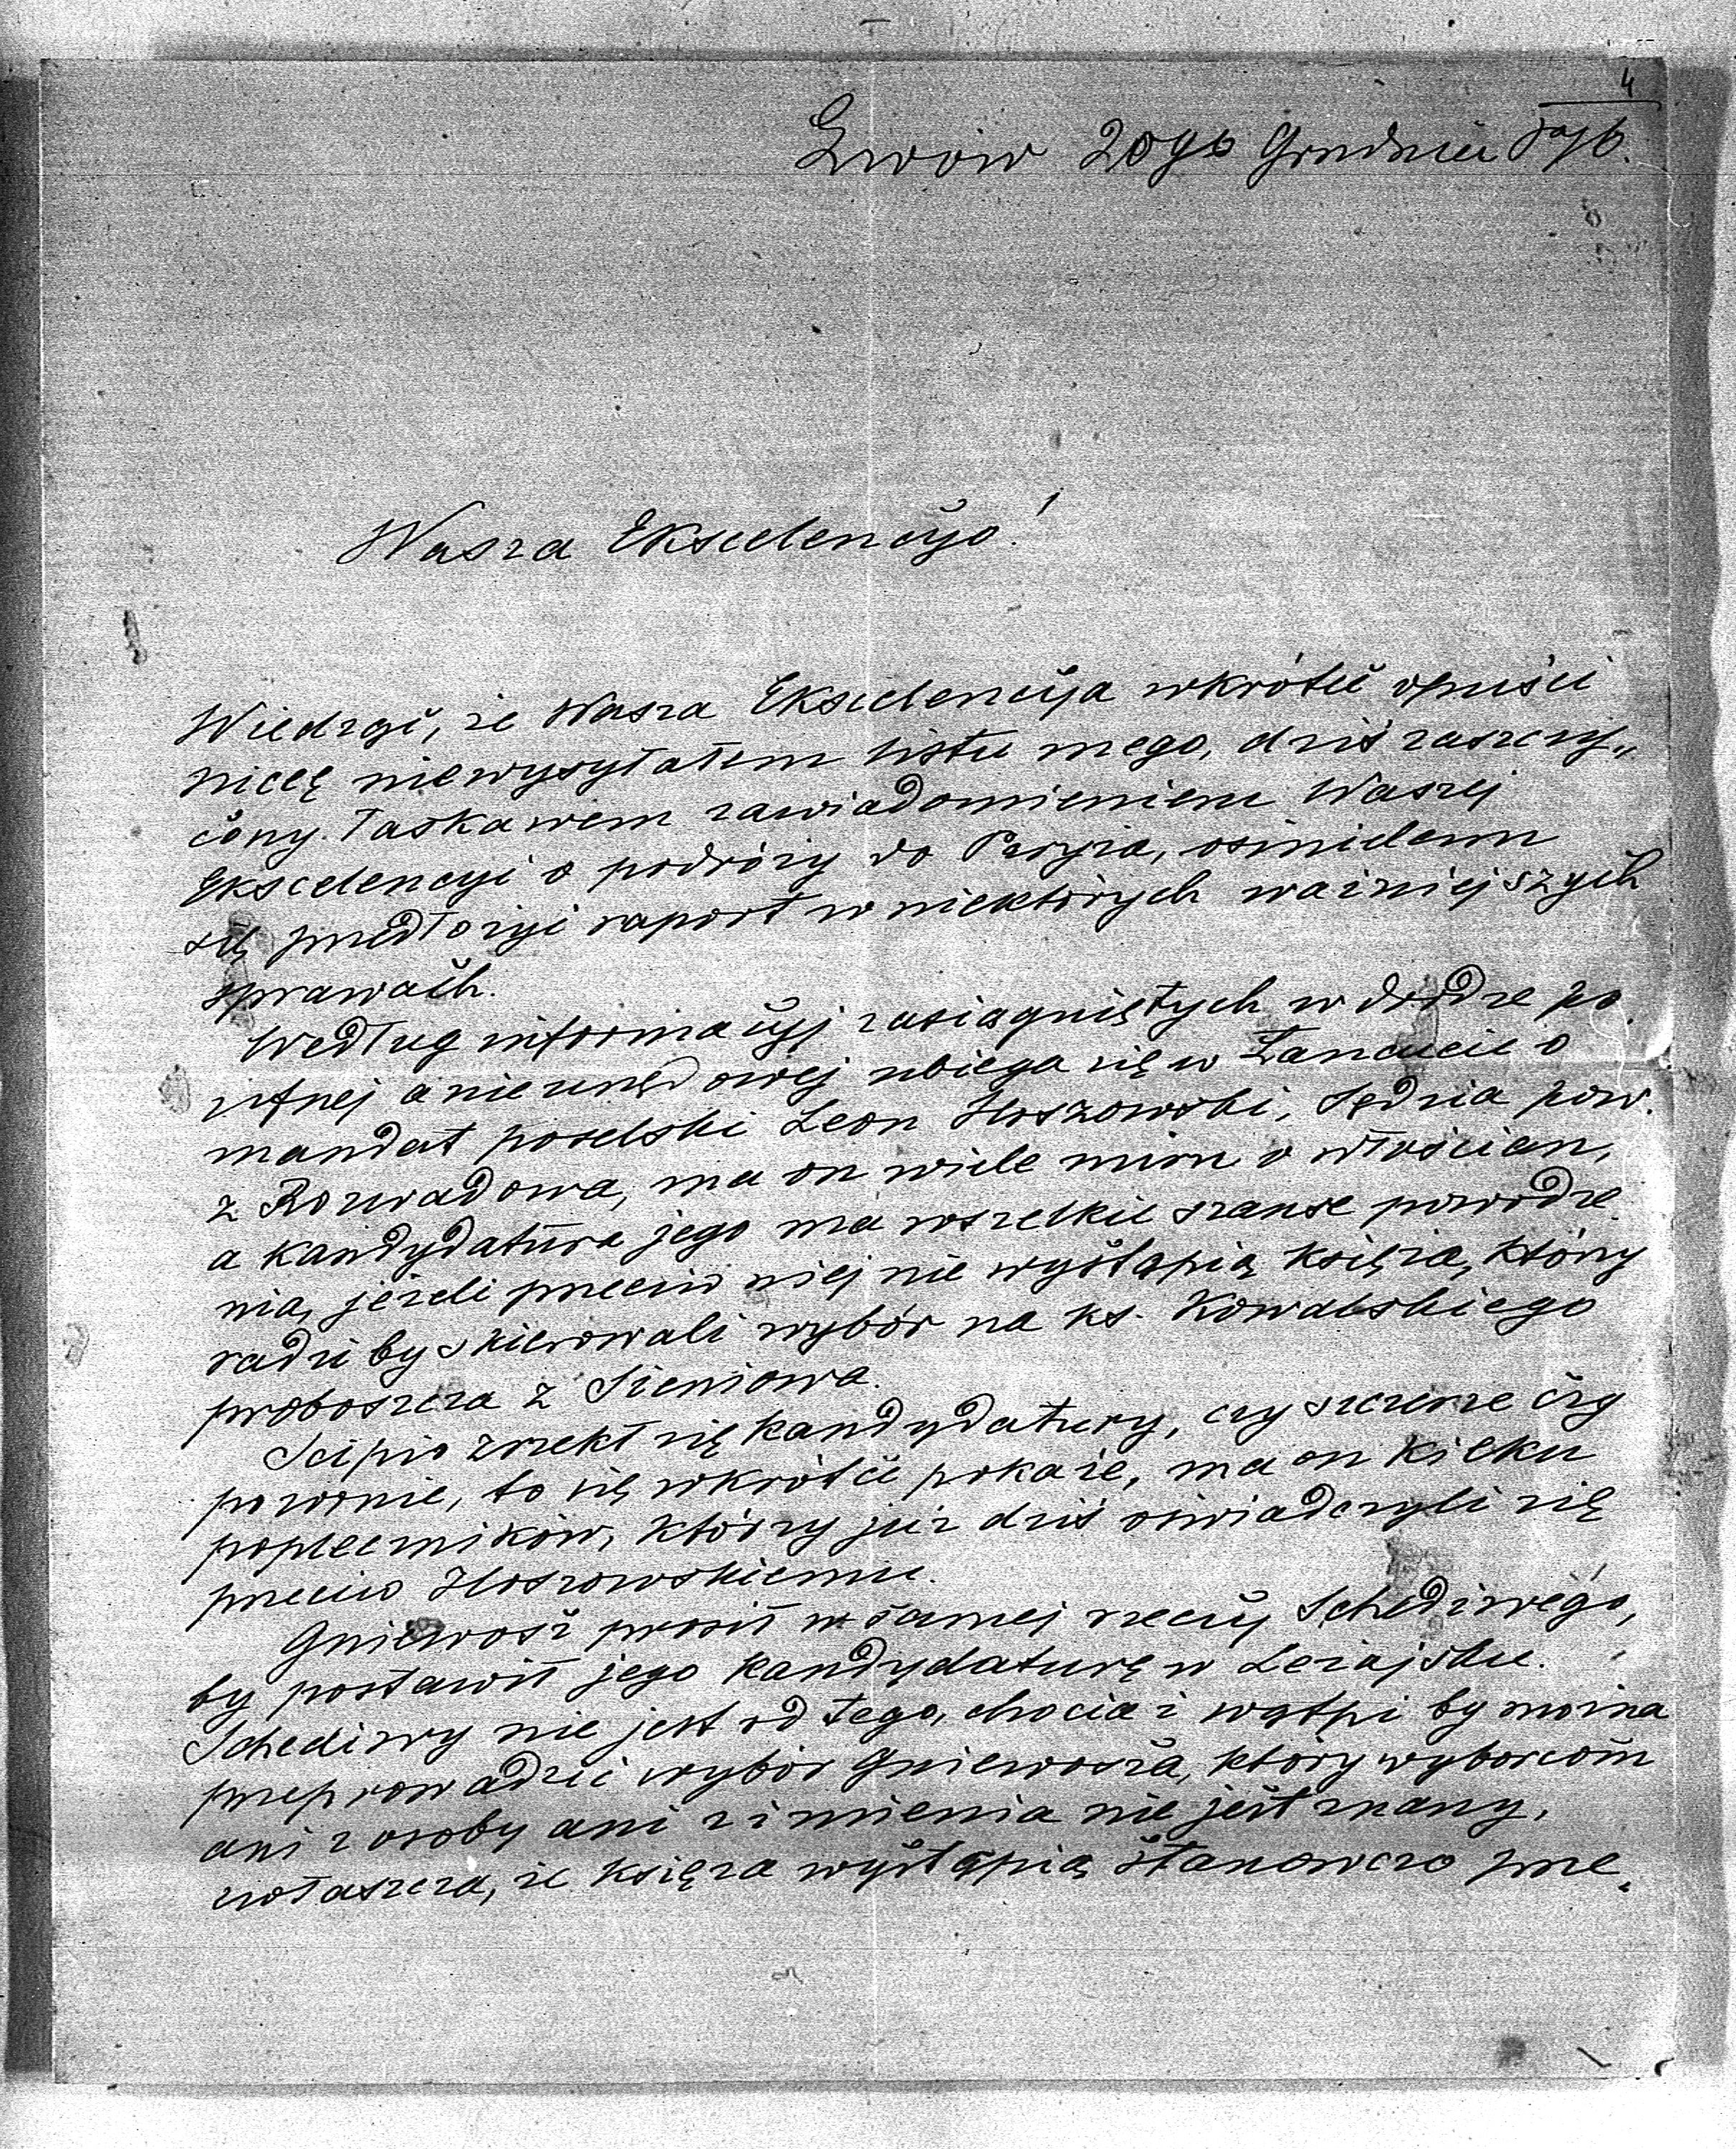 4
Lwów 20go Grudnia 876.
Wasza Ekscelencyo!
Wiedząc, że Wasza Ekscelencyja wkrótce opuści
Niceę niewysyłałem listu mego, dziś zaszczy„
cony łaskawem zawiadomieniem Waszej
Ekscelencyi o podróży do Paryża, ośmielam
się przedłożyć raport w niektórych ważniejszych
sprawach.
Według informacyj zasiągniętych w drodze po„
ufnej a nieurzędowej ubiega się w Łańcucie o
mandat poselski Leon Hoszowski, sędzia pow.
z Rozwadowa, ma on wiele miru u włościan,
a kandydatura jego ma wszelkie szanse powodze
nia, jeżeli przeciw niej nie wystąpią księża, którzy
radzi by skierowali wybór na ks. Kowalskiego
proboszcza z Sieniowa.
Scipio zrzekł się kandydatury, czy szczerze czy
pozornie, to się wkrótce pokaże, ma on kilku
popleczników, którzy już dziś oświadczyli się
przeciw Hoszowskiemu.
Gniewosz prosił w samej rzeczy Schediwego,
by postawił jego kandydaturę w Leżajsku.
Schediwy nie jest od tego, chociaż wątpi by można
przeprowadzić wybór Gniewosza, który wyborcom
ani z osoby ani z imienia nie jest znany,
zwłaszcza, że księża wystąpią stanowczo prze„